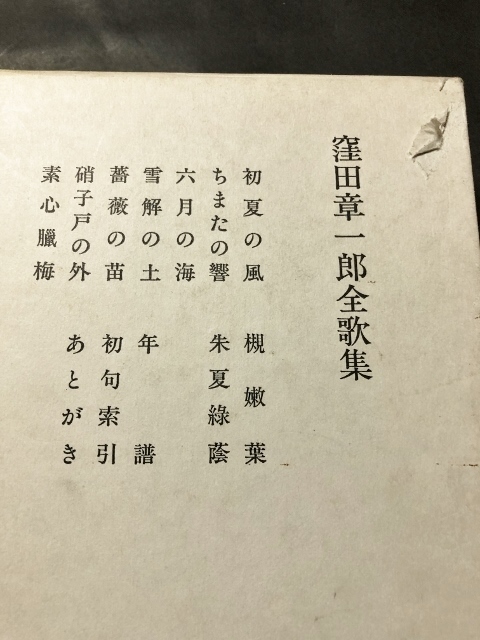 窪田章一郎全歌集
初夏の風
ちまたの響
六月の海
雪解の土
薔薇の苗
硝子戸の外
素心臘梅
槻嫩葉
朱夏緑蔭
年譜
初句索引
あとがき